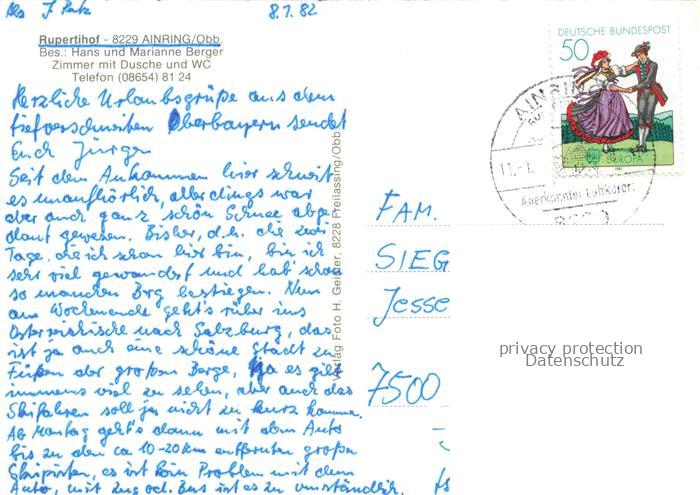 8.1.82
Rupertihof - 8229 AINRING/Obb.
Bes.: Hans und Marianne Berger
Zimmer mit Dusche und WC
Telefon (08654) 81 24
Herzliche Urlaubsgrüße aus dem
tiefverschneiten Oberbayern sendet
Euch Jürgen
Seit dem Ankommen hier schneit
es unaufhörlich, allerdings war
aber auch ganz schön Schnee abge-
taut gewesen. Bisher, d.h. die zwei
Tage, die ich schon hier bin, bin ich
sehr viel gewandert und hab' schon
so manchen Brg bestiegen. Nun
am Wochenende geht's rüber ins
Österreichische nach Salzburg, das
ist ja auch eine schöne Stadt zu
Füßen der großen Berge, ja es gibt
immens viel zu sehen, aber auch das
Skifahren soll ja nicht zu kurz kommen.
Ab Montag geht's dann mit dem Auto
bis zu den ca 10-20km entfernten großen
Skipisten, es ist kein Problem mit dem
Auto, mit Zug od. Bus ist es zu umständlich.
Verlag Foto H. Geisler, 8228 Freilassing/Obb.
DEUTSCHE BUNDESPOST
50
EUROPA
AINRING
11.-1.
Anerkannter Luftkurort
FAM.
SIEG
Jesse
7500
privacy protection
Datenschutz